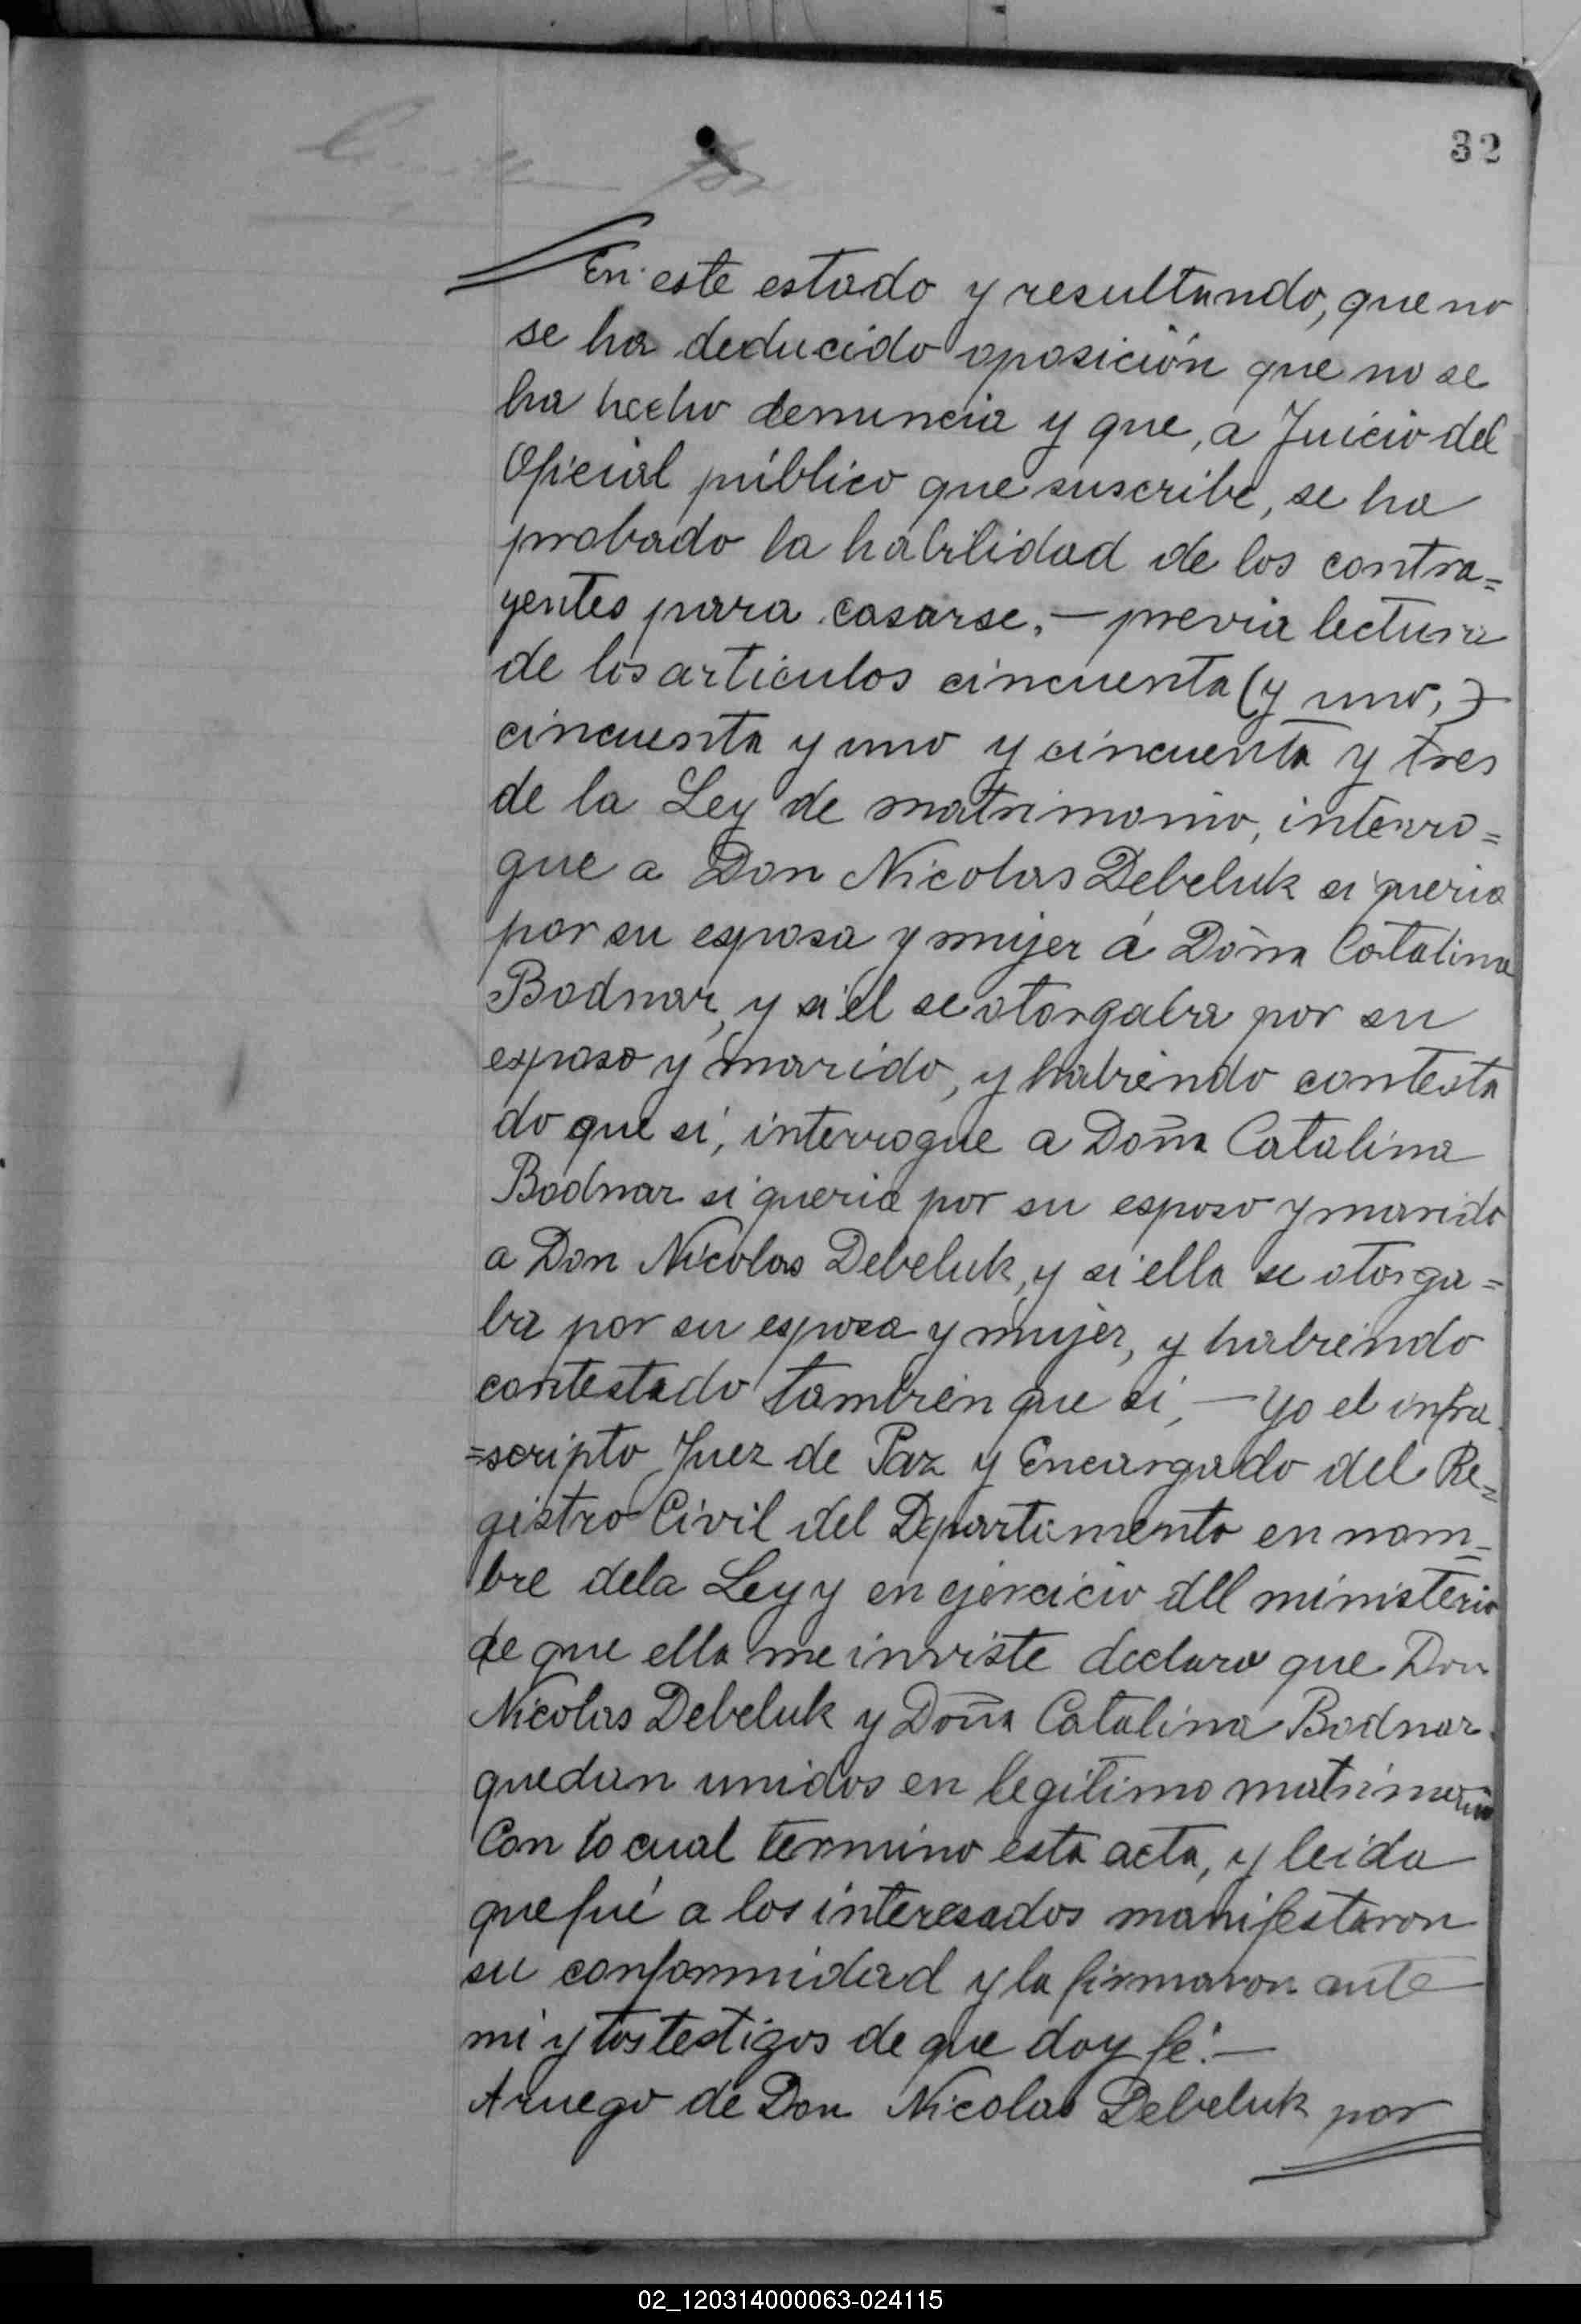 32
En este estado y resultando, que no
se ha deducido oposición que no se
ha hecho denuncia y que, a Juicio del
Oficial público que suscribe, se ha
probado la habilidad de los contra=
yentes para casarse, — previa lectura
de los articulos cincuenta (y uno,)
cincuenta y uno y cincuenta y tres
de la Ley de matrimonio, interro=
gue a Don Nicolas Debeluk si queria
por su esposa y mujer á Doña Catalina
Bodnar, y si el se otorgaba por su
esposo y marido, y habiendo contesta
do que si, interrogue a Doña Catalina
Bodnar si queria por su esposo y marido
a Don Nicolas Debeluk, y si ella se otorga=
ba por su esposa y mujer, y habiendo
contestado tambien que si, — Yo el infra
=scripto Juez de Paz y Encargado del Re=
gistro Civil del Departamento en nom=
bre dela Ley y en ejercicio dell ministerio
de que ella me inviste declaro que Don
Nicolas Debeluk y Doña Catalina Bodnar
quedan unidos en legítimo matrimonio
Con lo cual termino esta acta, y leida
que fué a los interesados manifestaron
su conformidad y la firmaron ante
mi y los testigos de que doy fé. —
A ruego de Don Nicolas Debeluk por
02_120314000063-024115